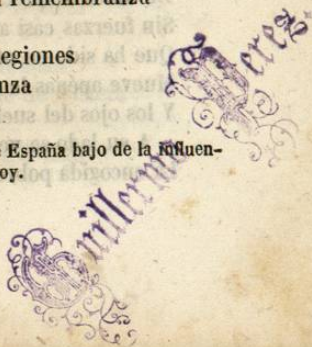 remembranza
egiones
nza
España bajo de la influen-
oy.
Guillermo Perez